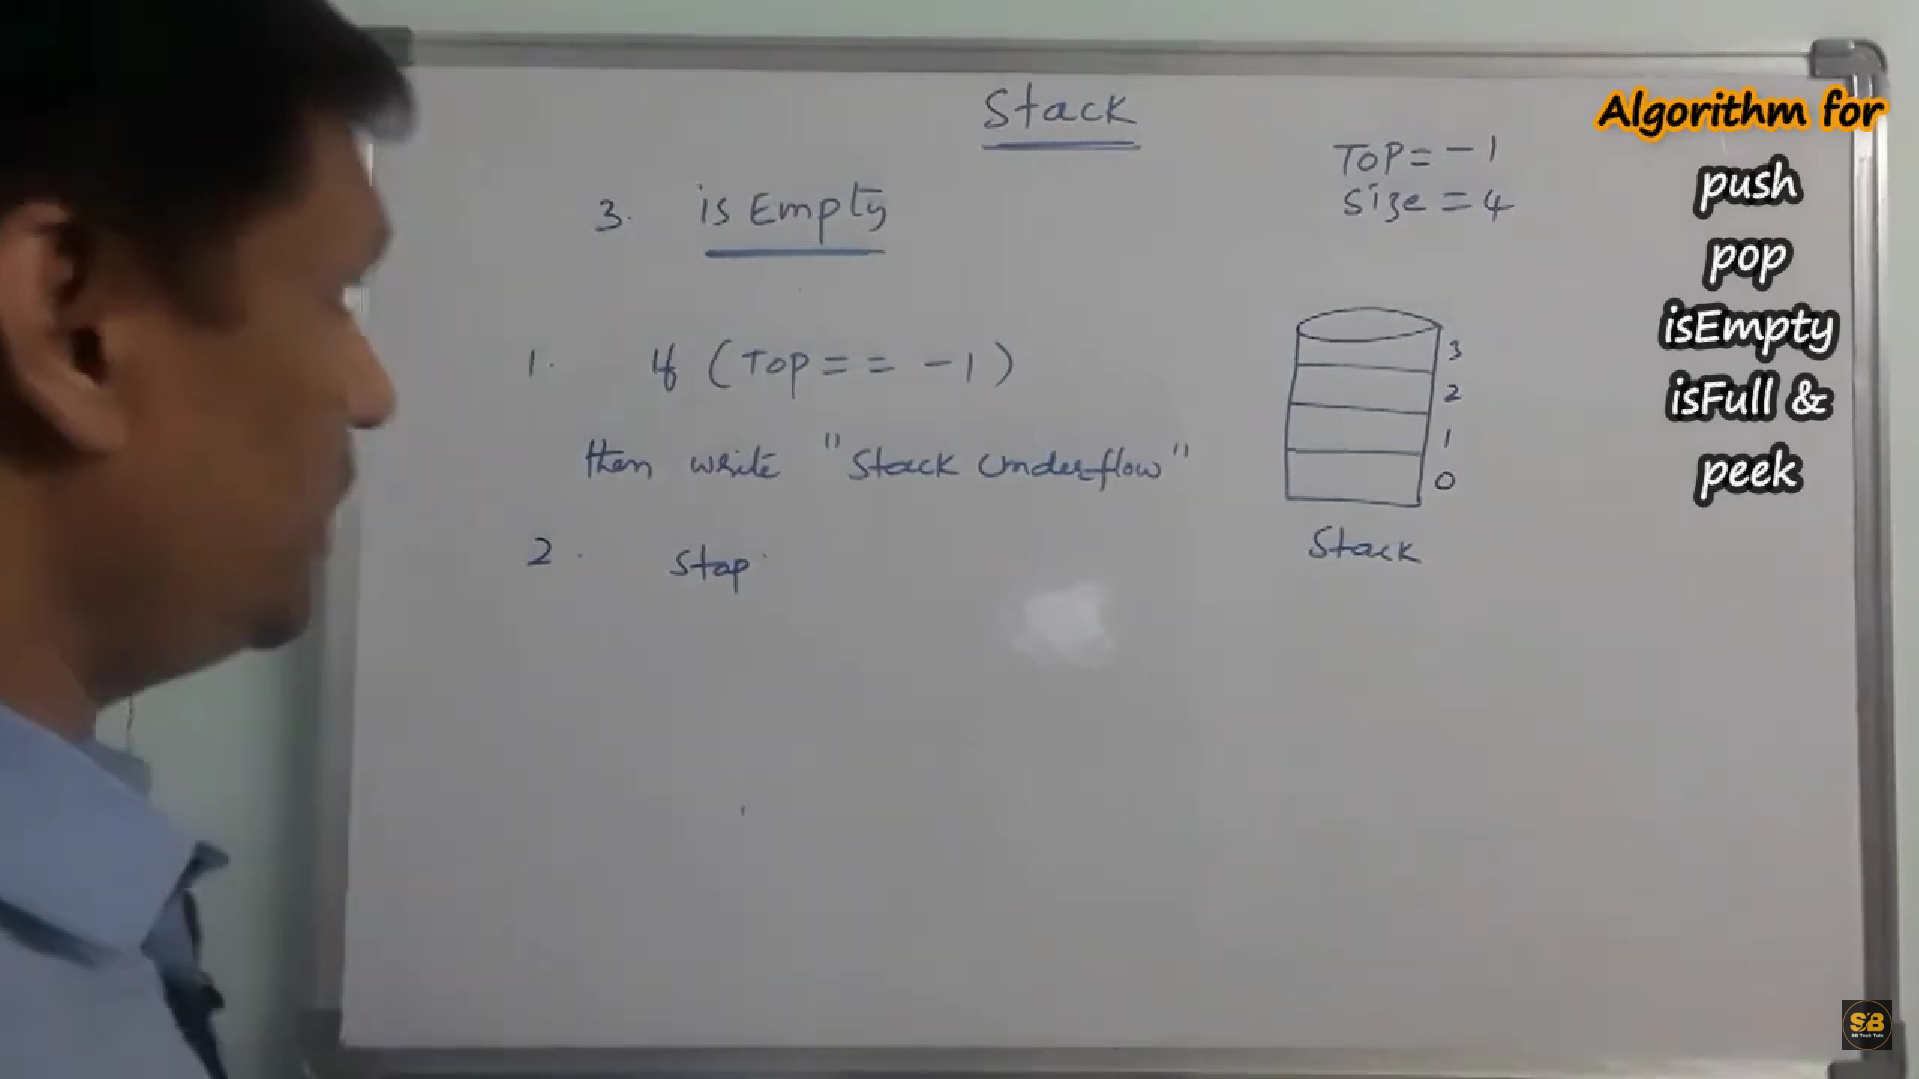 Stack
TOP = -1
Size = 4
3. is Empty
1. if (TOP == -1)
then write "Stack Underflow"
2. Stop
3
2
1
0
Stack
Algorithm for
push
pop
isEmpty
isFull &
peek
SB
SB Tech Tuts